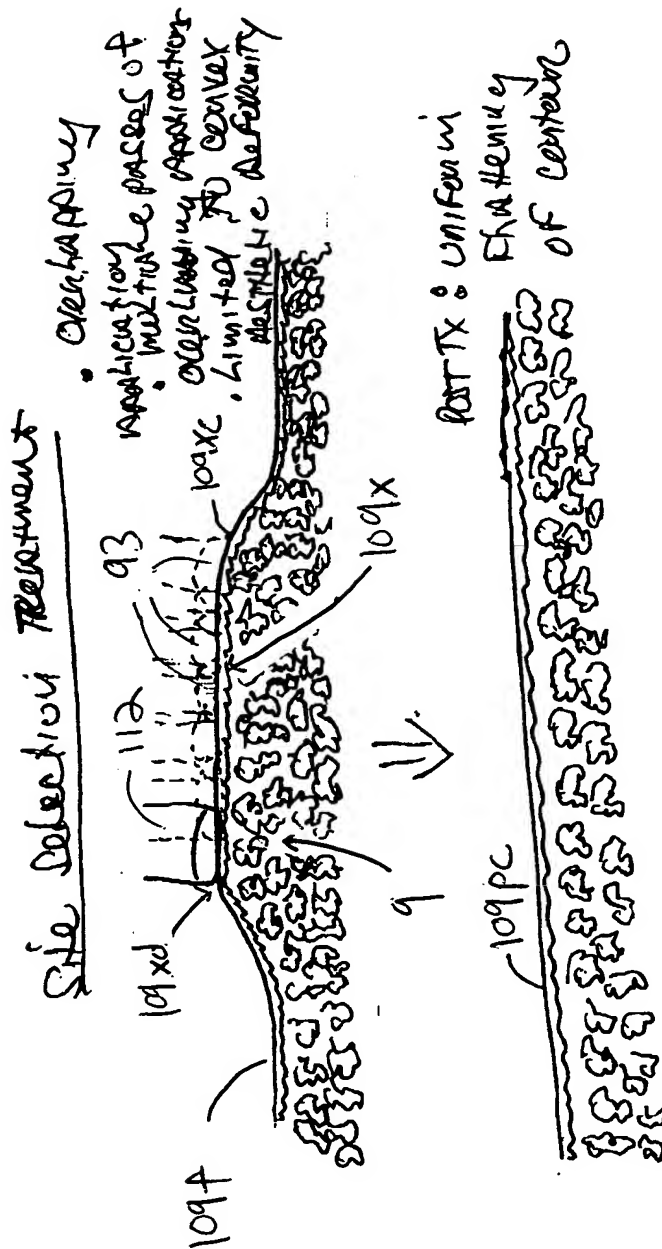 Site Selection Treatment
• overlapping
application
• multiple passes of
overlapping applications
• limited to convex
aesthetic deformity
109xd
112
93
109xc
109f
9
109x
Post TX: uniform
flattening
of contour
109pc